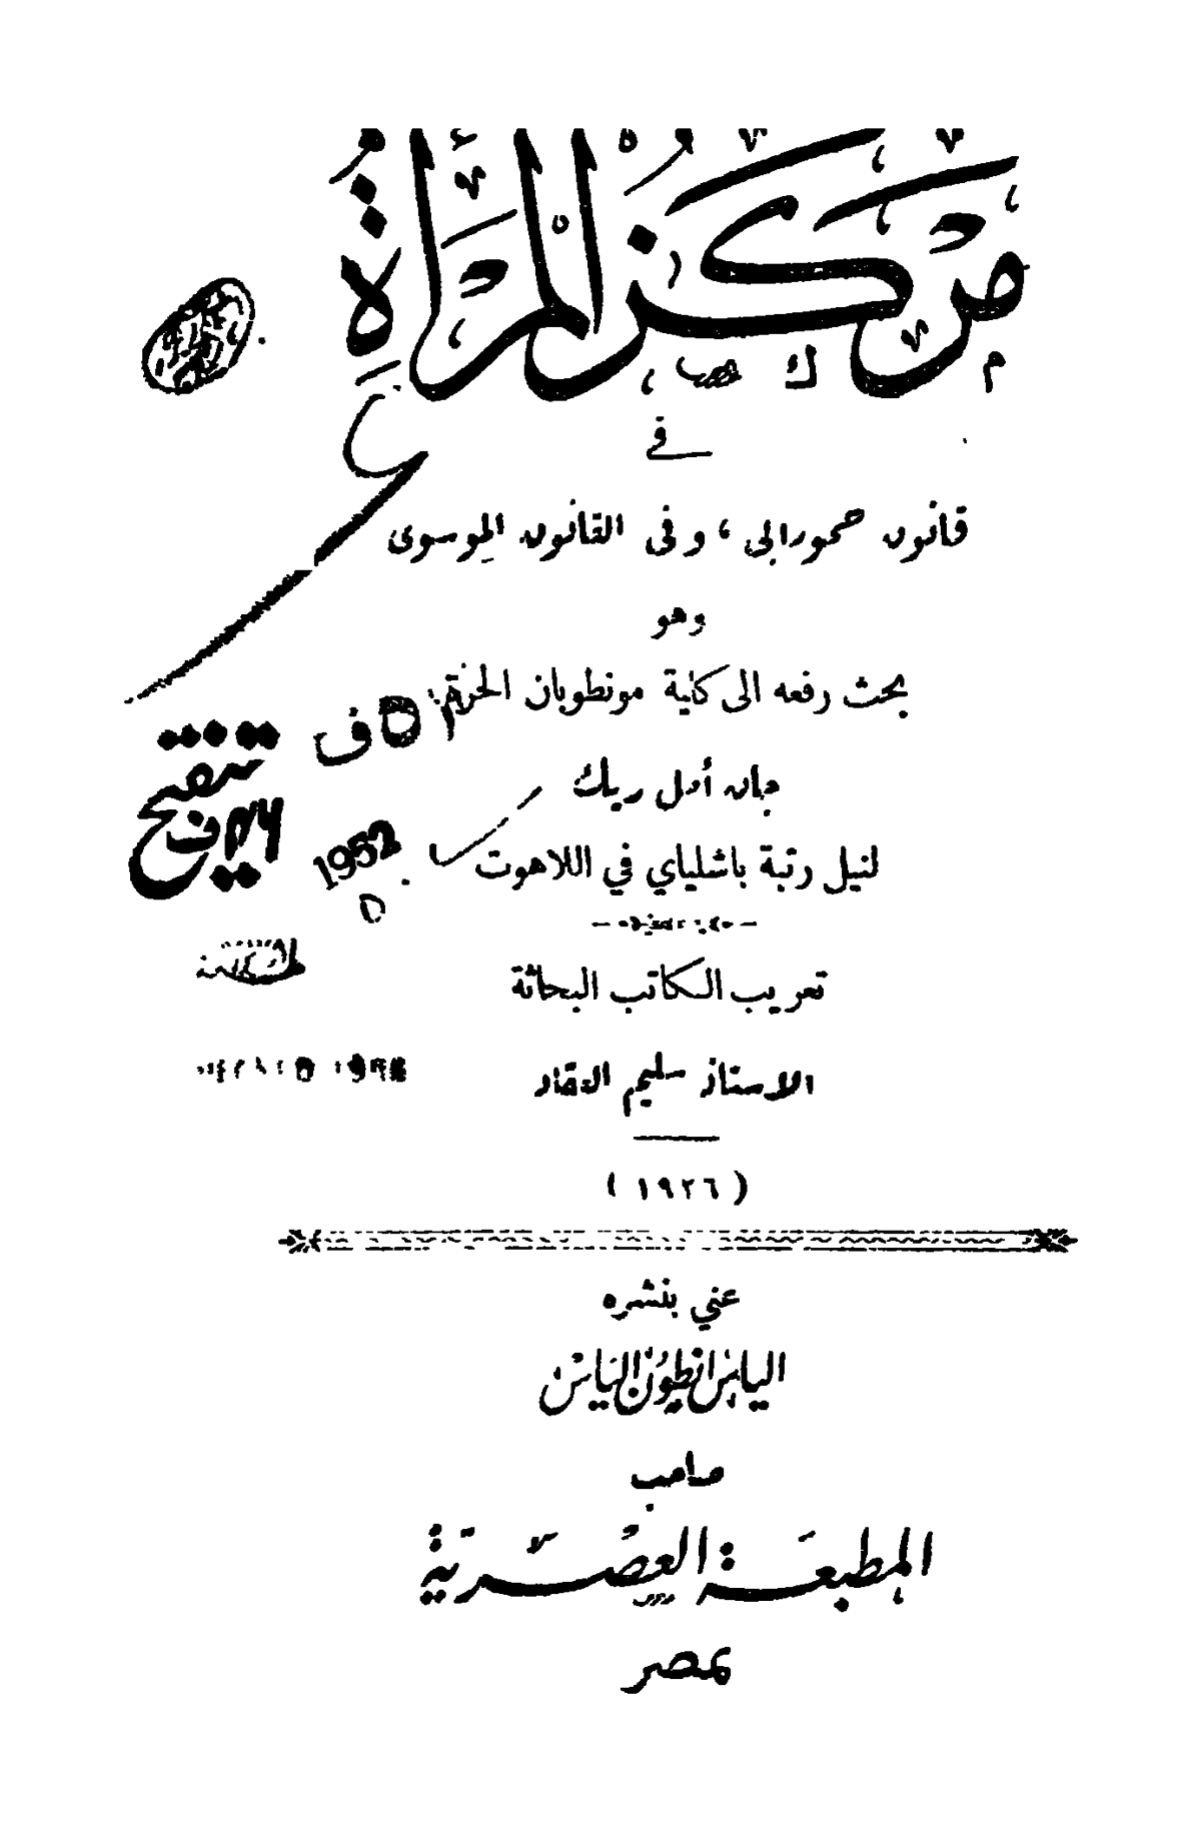 مركز المرأة
في
قانون حمورابي ، وفى القانون الموسوى
وهو
بحث رفعه الى كلية مونطوبان الحرة
جان أمل ريك
لنيل رتبة باشلياي في اللاهوت
تعريب الكاتب البحاثة
الاستاذ سليم العقاد
( ١٩٢٦ )
عني بنشره
الياس انطون الياس
صاحب
المطبعة العصرية
بمصر
تنقيح
1952